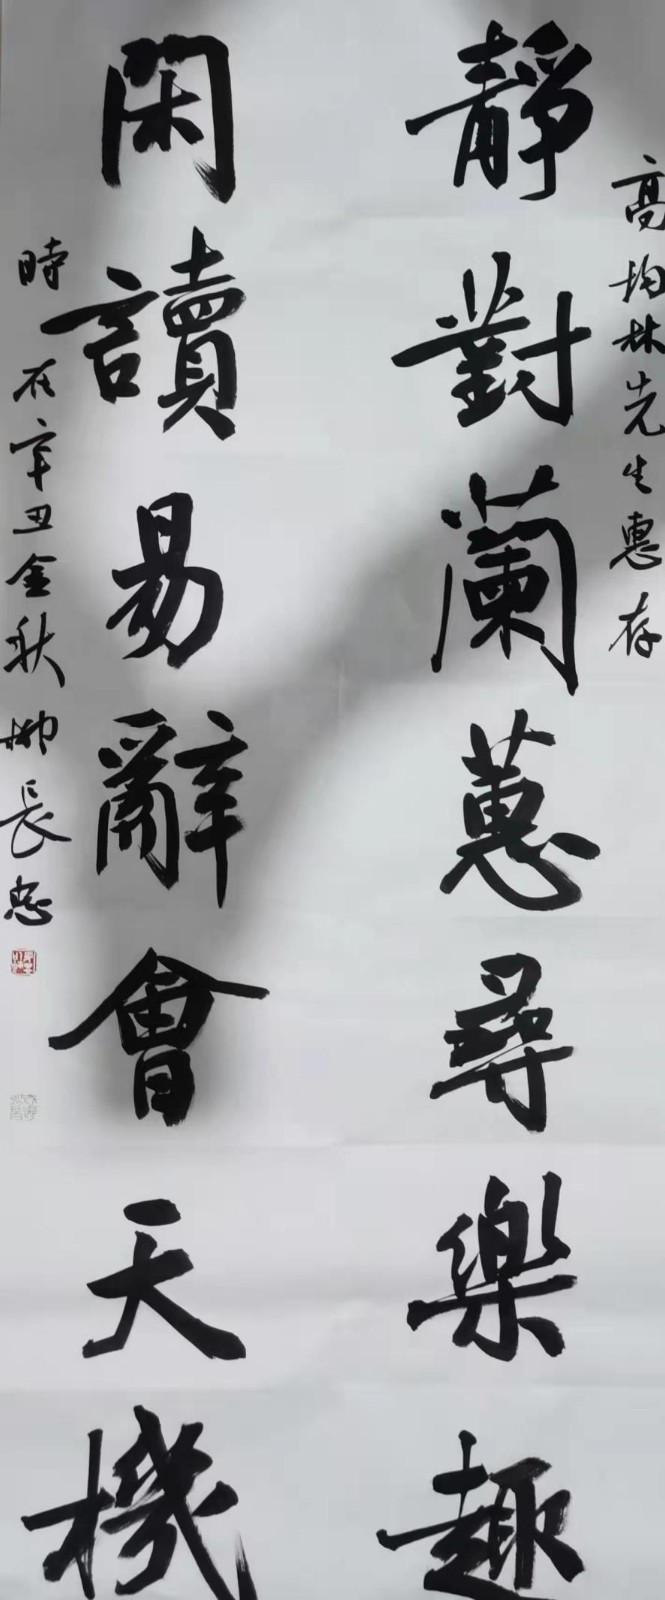 高均林先生惠存
靜對蘭蕙尋樂趣
閑讀易辭會天機
時在辛丑金秋柳長忠